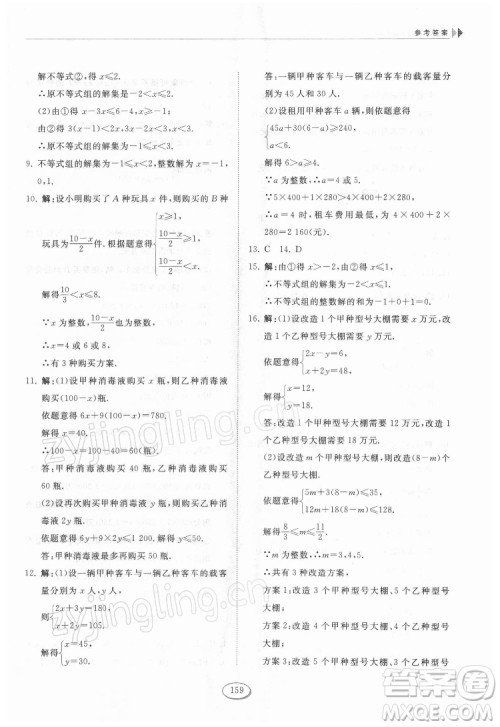 参考答案
解不等式②,得 x≤2.
∴原不等式组的解集为-1<x≤2.
(2)由①得 x-3x≤6-4,x≥-1,
由②得 3(x-1)<2x,x<3,
∴原不等式组的解集为-1≤x<3.
9. 不等式组的解集为-1≤x<2,整数解为-1,
0,1.
10. 解:设小明购买了 A 种玩具 x 件,则购买的 B 种
玩具为 (10-x)/2 件,根据题意得 { x≥1, (10-x)/2≥1, x>(10-x)/2.
解得 10/3<x≤8.
∵x 为整数, (10-x)/2 也为整数,
∴x=4 或 6 或 8.
∴有 3 种购买方案.
11. 解:(1)设甲种消毒液购买 x 瓶,则乙种消毒液
购买(100-x)瓶.
依题意得 6x+9(100-x)=780.
解得 x=40.
∴100-x=100-40=60(瓶).
答:甲种消毒液购买 40 瓶,乙种消毒液购买
60 瓶.
(2)设再次购买甲种消毒液 y 瓶,则购买乙种消
毒液 2y 瓶.
依题意得 6y+9×2y≤1 200.
解得 y≤50.
答:甲种消毒液最多再购买 50 瓶.
12. 解:(1)设一辆甲种客车与一辆乙种客车的载客
量分别为 x 人,y 人,
则 { 2x+3y=180, x+2y=105.
解得 { x=45, y=30.
答:一辆甲种客车与一辆乙种客车的载客量分
别为 45 人和 30 人.
(2)设租用甲种客车 a 辆,依题意得
{ 45a+30(6-a)≥240, a<6.
解得 6>a≥2.
∵a 为整数,
∴a=4 时,租车费用最低,为 4×400+2×
280=2 160(元).
13. C 14. D
15. 解:由①得 x>-2,由②得 x≤1,
∴不等式组的解集为-2<x≤1.
∴不等式组的整数解的和为-1+0+1=0.
16. 解:(1)设改造 1 个甲种型号大棚需要 x 万元,
改造 1 个乙种型号大棚需要 y 万元,
依题意得 { 2x-y=6, x+2y=48.
解得 { x=12, y=18.
答:改造 1 个甲种型号大棚需要 12 万元,改造 1
个乙种型号大棚需要 18 万元.
(2)设改造 m 个甲种型号大棚,则改造(8-m)个
乙种型号大棚,
依题意得 { 5m+3(8-m)≤35, 12m+18(8-m)≤128.
解得 8/3≤m≤11/2.
∵m 为整数,∴m=3,4,5,
∴共有 3 种改造方案,
方案 1:改造 3 个甲种型号大棚,5 个乙种型号
大棚;
方案 2:改造 4 个甲种型号大棚,4 个乙种型号
大棚;
方案 3:改造 5 个甲种型号大棚,3 个乙种型号
159
zyjingling.cn
作业精灵